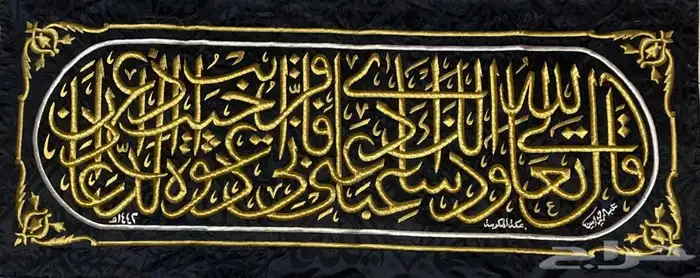 قال الله تعالى وإذا سألك عبادي عني فإني قريب أجيب دعوة الداع إذا دعان
مكة المكرمة
١٤٤٢هـ
حراج